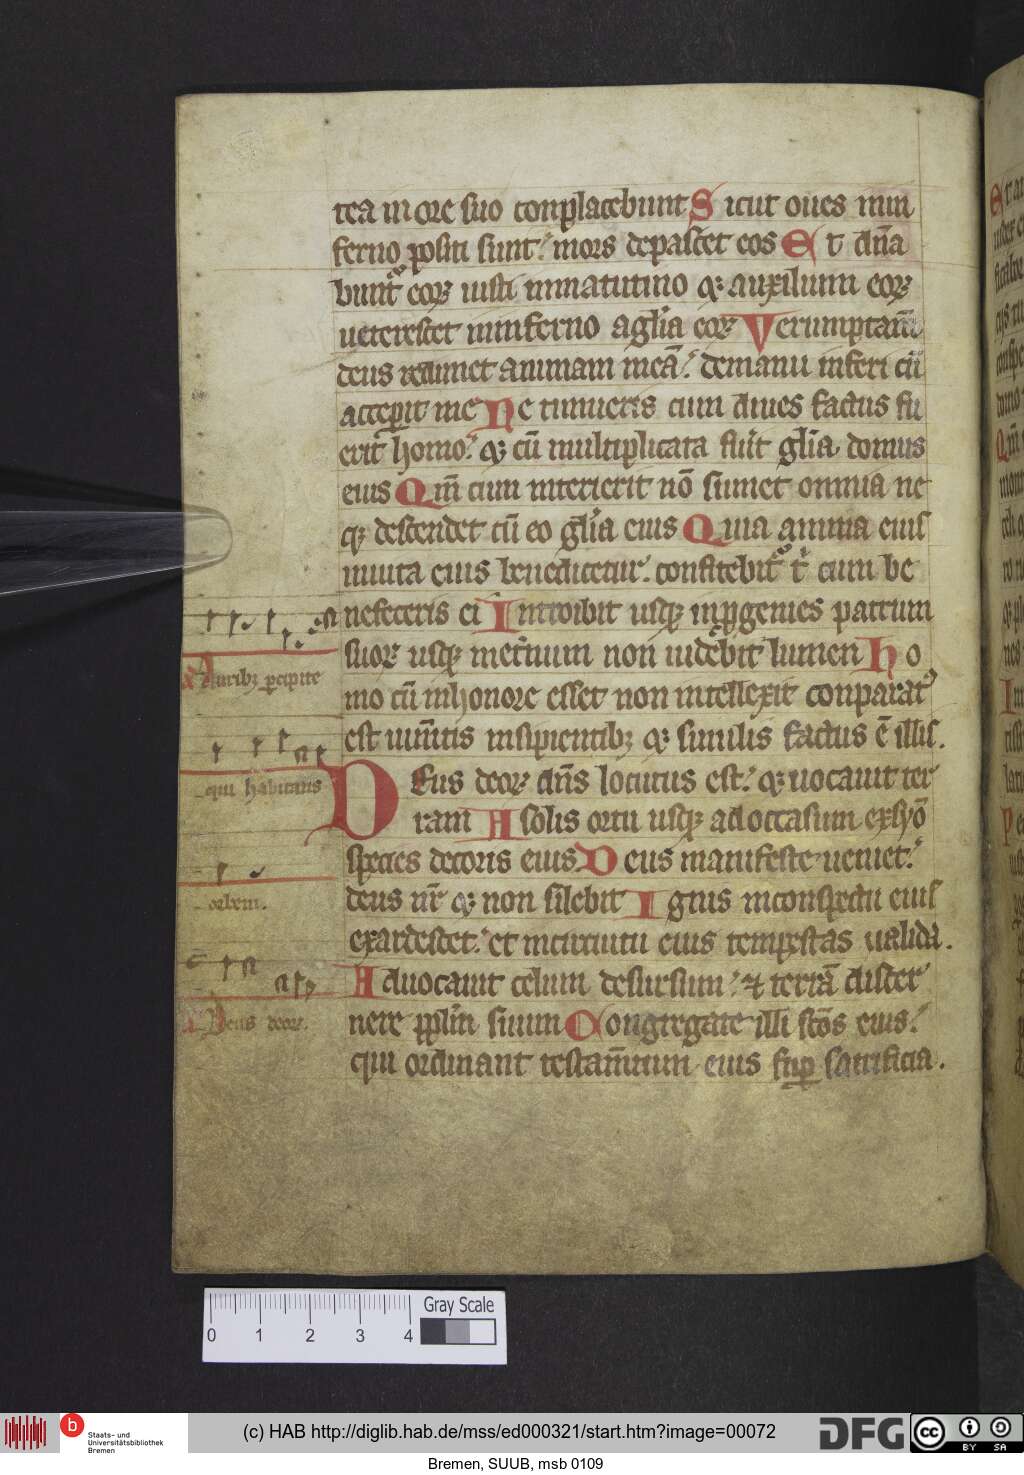 tea in ore suo conplacebunt Sicut oues inin
ferno positi sunt: mors depascet eos Et dn̄a
bunt eoꝝ iusti inmatutino ⁊ auxilium eoꝝ
ueterescet ininferno a gl̄ia eoꝝ Verumptam̄
deus redimet animam meā: demanu inferi cū
acceꝑit me Ne timueris cum diues factus fu
erit homo: ⁊ cū multiplicata fuīt gl̄ia domus
eius Qm̄ cum interierit nō sumet omnia ne
qꝫ descendet cū eo gl̄ia eius Quia anima eius
inuita eius benedicetur: confitebit᷑ t͛ cum be
nefeceris ei Introibit usqꝫ inꝓgenies patrum
suoꝝ usqꝫ inet̄num non uidebit lumen Ho
mo cū inhonore esset non intellexit conparat᷒
est ium̄tis insipientibꝫ ⁊ similis factus ē illis.
Deus deoꝝ dn̄s locutus est: ⁊ uocauit ter
ram A solis ortu usqꝫ ad occasum exsyō
species decoris eius. Deus manifeste ueniet:
deus nr̄ ⁊ non silebit Ignis inconspectu eius
exardescet: et incircuitu eius tempestas ualida.
Aduocauit celum desursum: ⁊ terrā discer
nere ppl̄m suum Congregate illi scōs eius:
qui ordinant testam̄tum eius suꝑ sacrificia.
a Auribꝫ ꝑcipite
qui habitatis
orbem.
a Deus deoꝝ.
0 1 2 3 4
Gray Scale
Staats- und
Universitätsbibliothek
Bremen
(c) HAB http://diglib.hab.de/mss/ed000321/start.htm?image=00072
DFG
cc BY SA
Bremen, SUUB, msb 0109